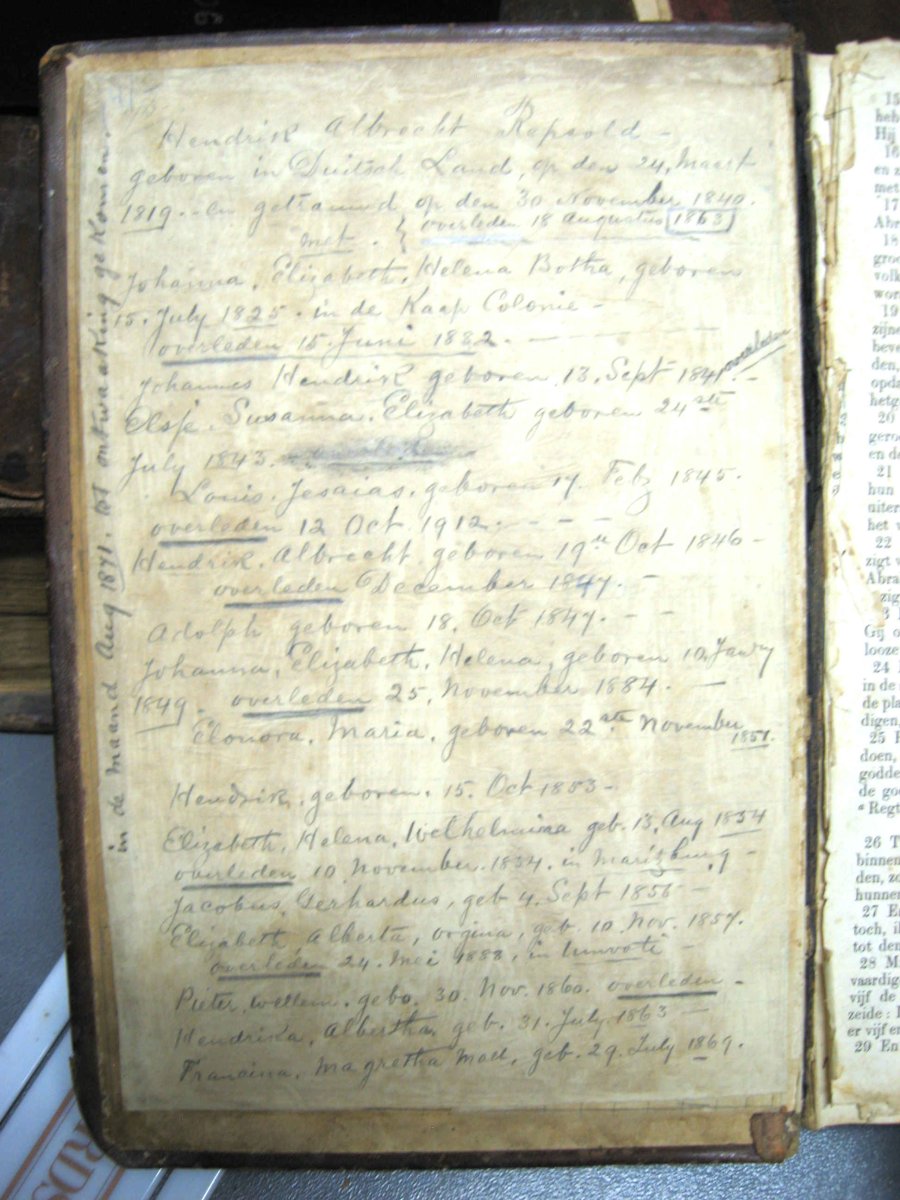 Hendrik Albrecht Repsold -
geboren in Duitsch Land, op den 24, Maart
1819. en getrauwd op den 30 November 1840.
met. { overleden 18 Augustus 1863
Johanna, Elizabeth, Helena Botha, geboren
15. July 1825. in de Kaap Colonie -
overleden 15. Juni 1882. -
Johannes Hendrik geboren, 13. Sept 1841. - overleden
Elsje. Susanna. Elizabeth geboren 24ste
July 1843.
Louis. Jesaias. geboren 17. Feb 1845.
overleden 12 Oct 1912. - - -
Hendrik. Albrecht geboren 19de Oct 1846 -
overleden December 1847. -
Adolph geboren 18. Oct 1847. - -
Johanna, Elizabeth, Helena, geboren 10, Janry
1849. overleden 25, November 1884. -
Elonora, Maria, geboren 22ste November
1851.
Hendrik, geboren. 15. Oct 1853 -
Elizabeth, Helena, Welhelmina geb. 13, Aug 1854
overleden 10 November. 1854. in Maritzburg -
Jacobus, Gerhardus, geb 4. Sept 1856 -
Elizabeth Alberta, orgina, geb. 10. Nov. 1857.
overleden 24. Mei 1888, in Umvoti -
Pieter. wellem. gebo. 30. Nov. 1860. overleden -
Hendrika, Albertha, geb. 31. July. 1863 -
Francina, Magretha geb. 29. July 1869.
in de maand Aug 1871. tot ontwaaking gekomen.
15
heb
Hij
16
en z
met
17
Abr
18
groo
volk
wor
19
zijne
beve
den,
opda
hetg
20
gero
en de
21
hun
uiter
het v
22
zigt v
Abra
zig
Gij o
looze
24
in de
de pla
digen,
25
doen,
godde
de go
Regt
26 T
binnen
den, zo
hunner
27 En
toch, ik
tot den
28 Mi
vaardig
vijf de
zeide: I
er vijf en
29 En
RDS